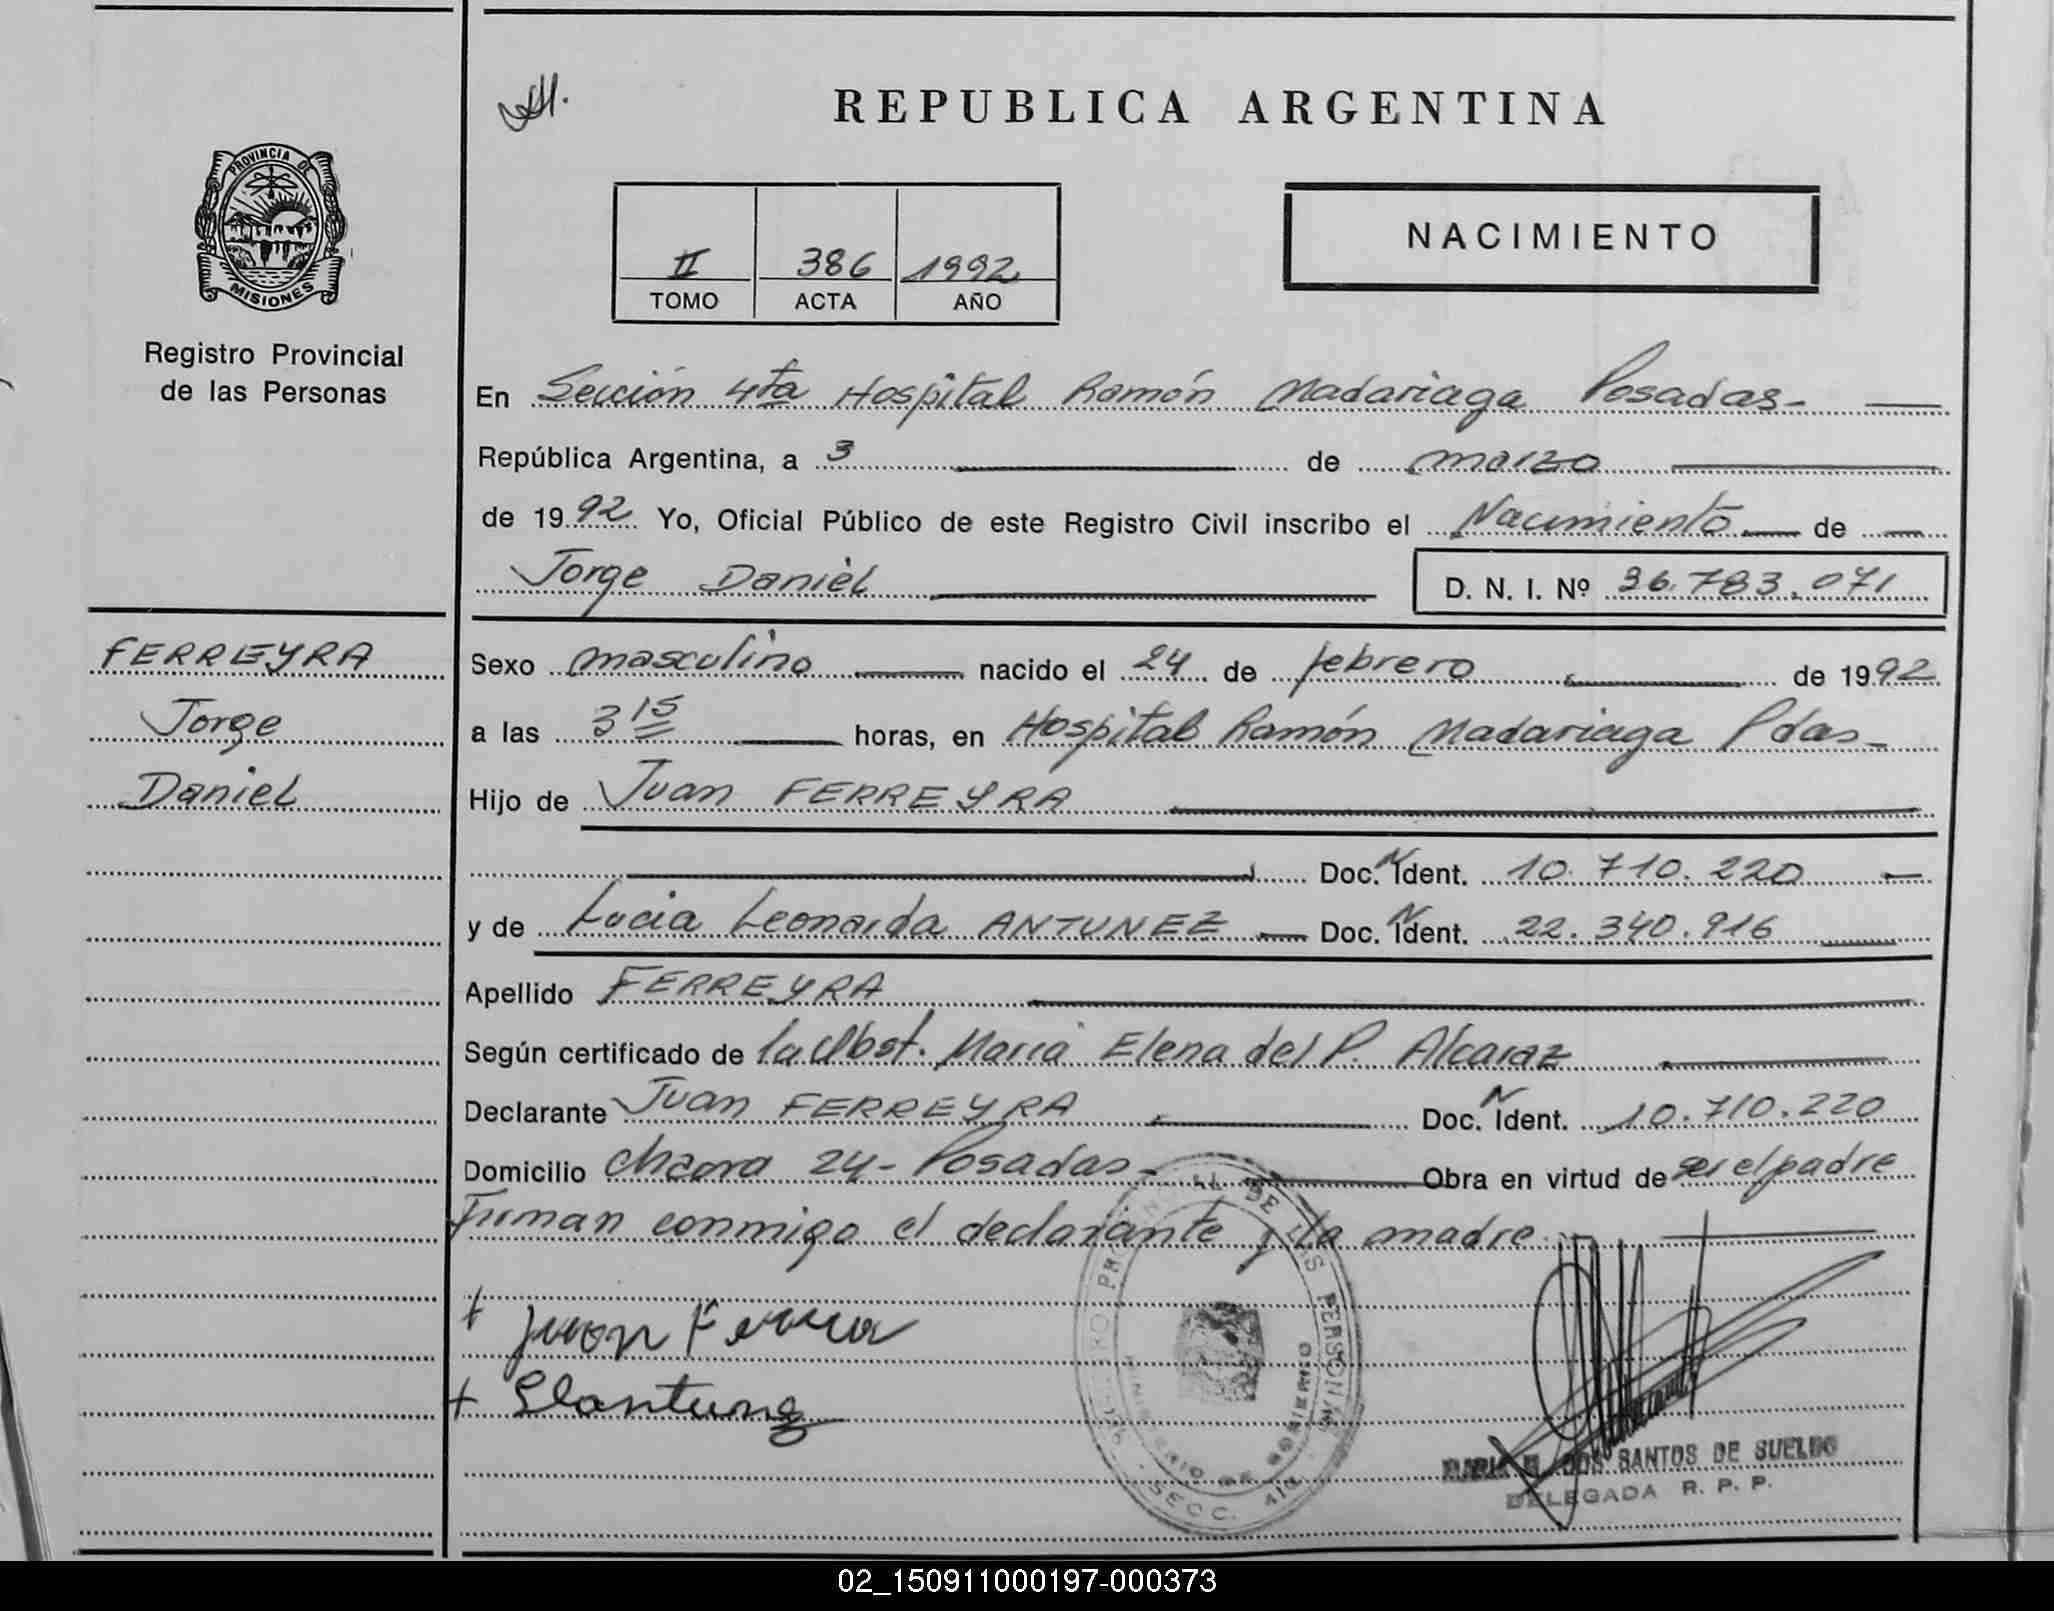 REPUBLICA ARGENTINA
PROVINCIA DE
MISIONES
Registro Provincial
de las Personas
II 386 1992
TOMO ACTA AÑO
NACIMIENTO
En Sección 4ta Hospital Ramón Madariaga Posadas-
República Argentina, a 3 de marzo
de 1992 Yo, Oficial Público de este Registro Civil inscribo el Nacimiento de
Jorge Daniel D. N. I. Nº 36.783.071
FERREYRA
Jorge
Daniel
Sexo masculino nacido el 24 de febrero de 1992
a las 3 15 horas, en Hospital Ramón Madariaga Pdas-
Hijo de Juan FERREYRA
Doc. N Ident. 10.710.220
y de Lucia Leonarda ANTUNEZ Doc. N Ident. 22.340.916
Apellido FERREYRA
Según certificado de la Obst. María Elena del P. Alcaraz
Declarante Juan FERREYRA Doc. N Ident. 10.710.220
Domicilio chacra 24- Posadas- Obra en virtud de ser el padre
Firman conmigo el declarante y la madre
+ Juan Ferreira
+
REGISTRO PROVINCIAL DE LAS PERSONAS
MINISTERIO DE GOBIERNO
SECC. 4ta
DOS SANTOS DE SUELDO
DELEGADA R. P. P.
02_150911000197-000373